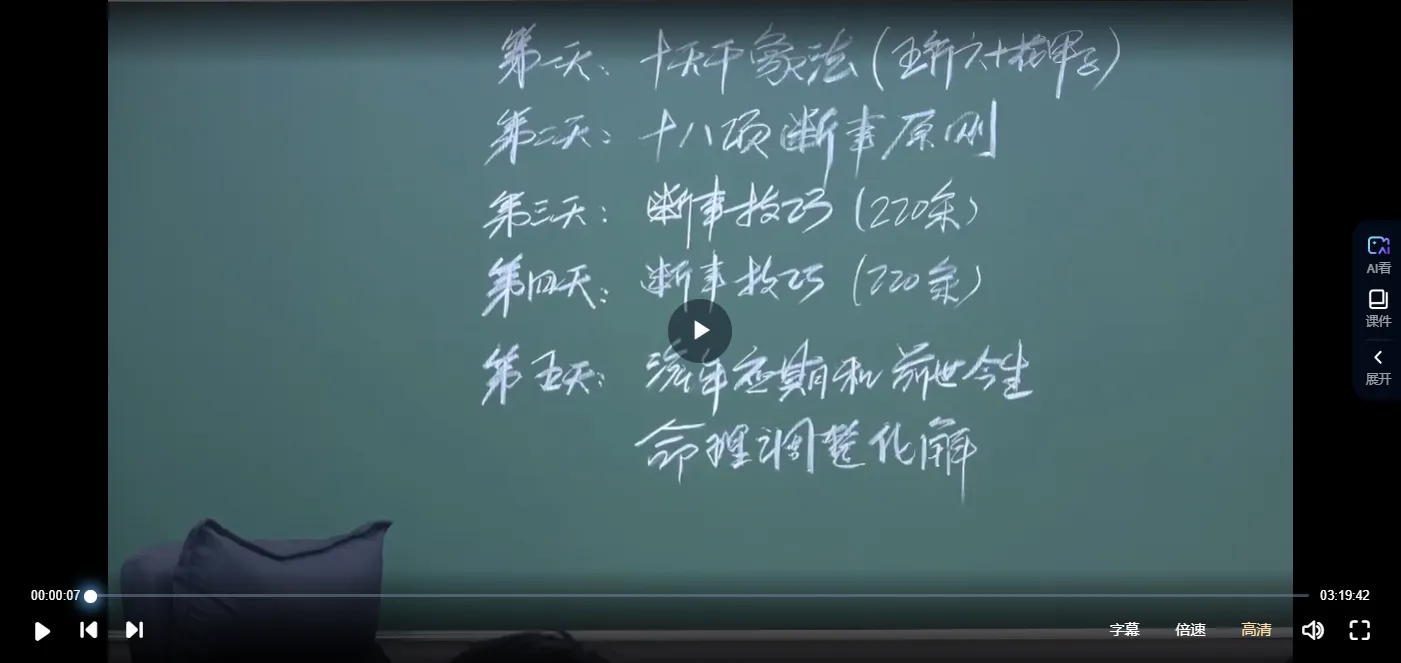 第一天：十天干象法（五行六十花甲子）
第二天：十八项断事原则
第三天：断事技巧（220条）
第四天：断事技巧（220条）
第五天：流年应期和前世今生
命理调整化解
AI看
课件
展开
00:00:07
03:19:42
字幕
倍速
高清